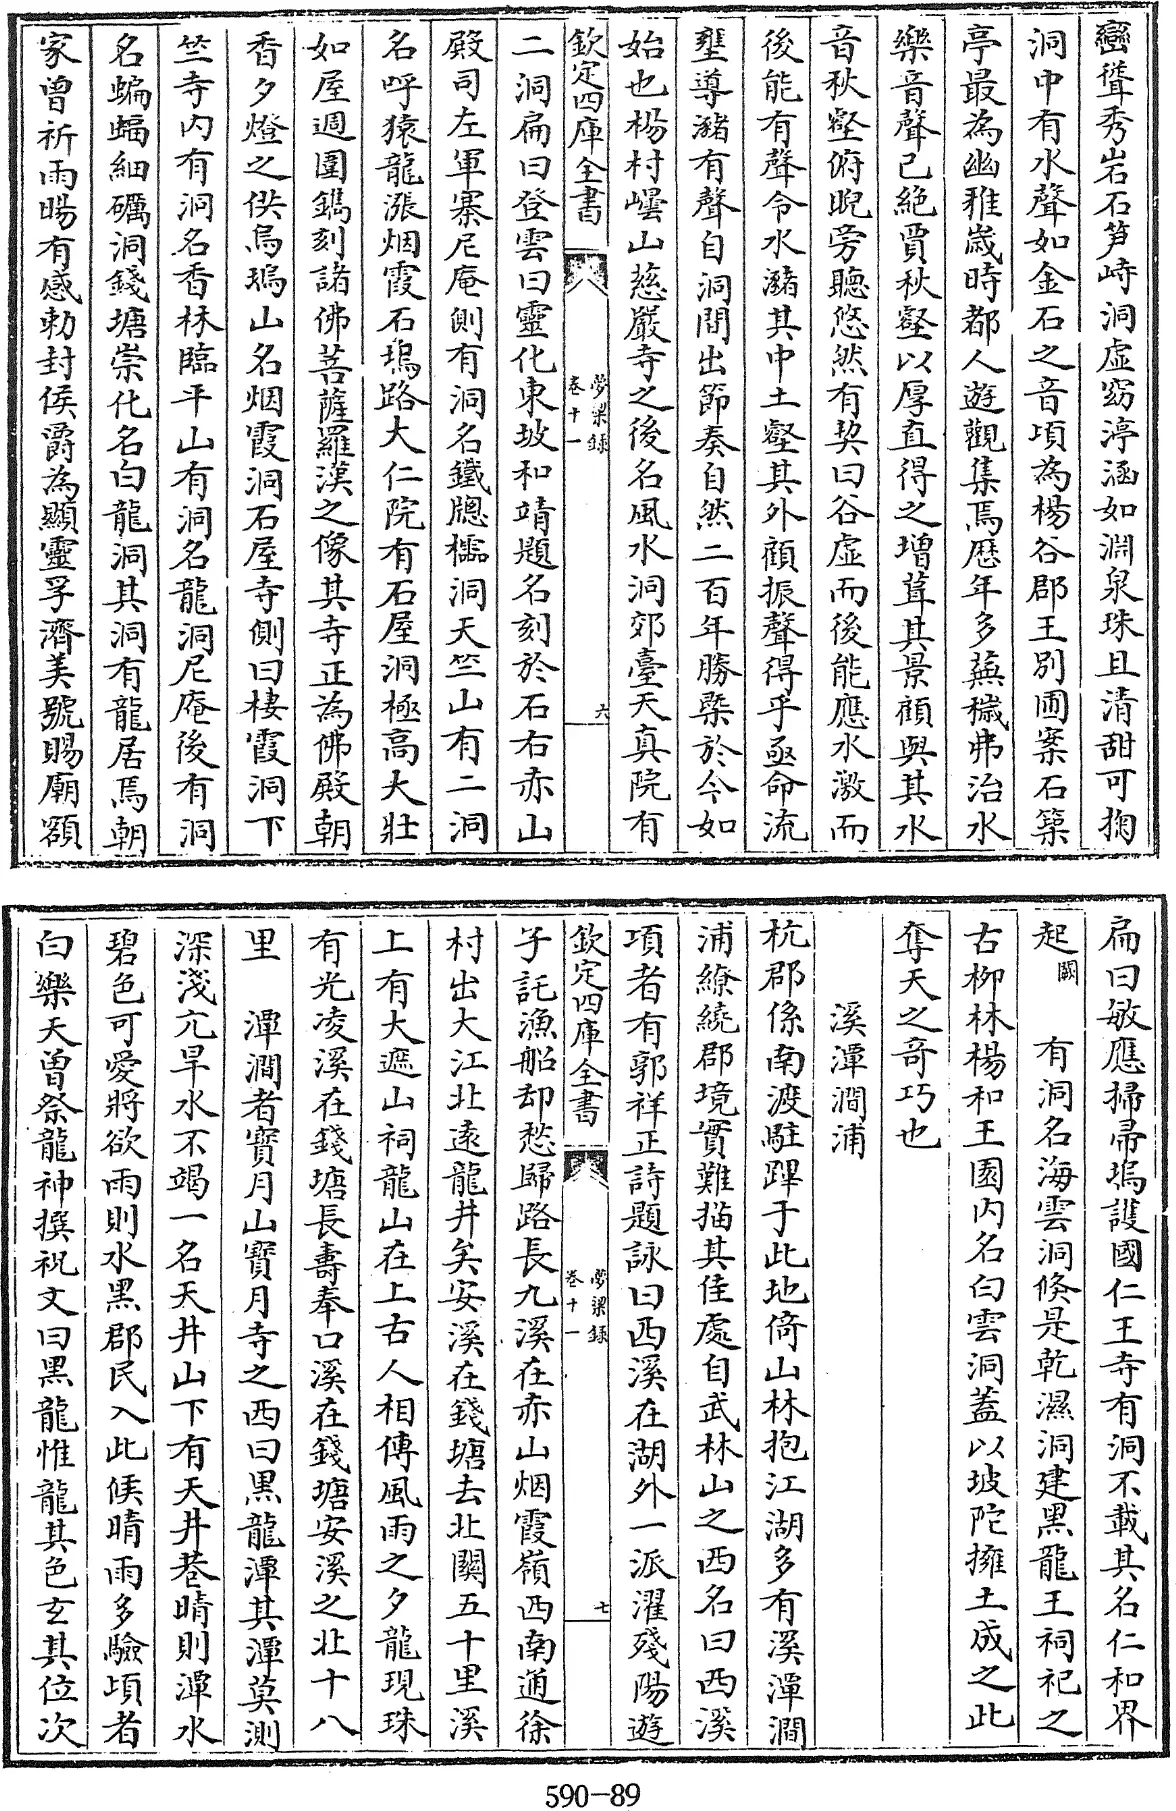 巒聳秀岩石笋峙洞虛窈渟涵如淵泉珠且清甜可掬
洞中有水聲如金石之音項為楊谷郡王別圃案石築
亭最為幽雅歲時都人遊觀集焉歷年多蕪穢弗治水
樂音聲已絶賈秋壑以厚直得之增葺其景顧與其水
音秋壑俯睨旁聽悠然有契曰谷虛而後能應水激而
後能有聲今水瀦其中土壑其外顧振聲得乎亟命流
壅導瀦有聲自洞間出節奏自然二百年勝槩於今如
始也楊村㠠山慈嚴寺之後名風水洞郊臺天真院有
欽定四庫全書
夢梁録
卷十一
六
二洞扁曰登雲曰靈化東坡和靖題名刻於石右赤山
殿司左軍寨尼庵側有洞名鐵牕櫺洞天竺山有二洞
名呼猿龍漲烟霞石塢路大仁院有石屋洞極高大壯
如屋週圍鐫刻諸佛菩薩羅漢之像其寺正為佛殿朝
香夕燈之供烏塢山名烟霞洞石屋寺側曰棲霞洞下
竺寺内有洞名香林臨平山有洞名龍洞尼庵後有洞
名蝙蝠細礪洞錢塘崇化名白龍洞其洞有龍居焉朝
家曾祈雨暘有感勅封侯爵為顯靈孚濟美號賜廟額
扁曰敏應掃帚塢護國仁王寺有洞不載其名仁和界
起闕 有洞名海雲洞倏是乾濕洞建黑龍王祠祀之
古柳林楊和王園内名白雲洞蓋以坡陀擁土成之此
奪天之奇巧也
溪潭澗浦
杭郡係南渡駐蹕于此地倚山林抱江湖多有溪潭澗
浦繚繞郡境實難描其佳處自武林山之西名曰西溪
項者有郭祥正詩題詠曰西溪在湖外一派濯殘陽遊
欽定四庫全書
夢梁録
卷十一
七
子託漁船却愁歸路長九溪在赤山烟霞嶺西南通徐
村出大江北遶龍井矣安溪在錢塘去北關五十里溪
上有大遮山祠龍山在上古人相傳風雨之夕龍現珠
有光凌溪在錢塘長壽奉口溪在錢塘安溪之北十八
里 潭澗者寳月山寳月寺之西曰黒龍潭其潭莫測
深淺亢旱水不竭一名天井山下有天井巷晴則潭水
碧色可愛將欲雨則水黒郡民入此候晴雨多驗項者
白樂天曾祭龍神撰祝文曰黒龍惟龍其色玄其位次
590-89